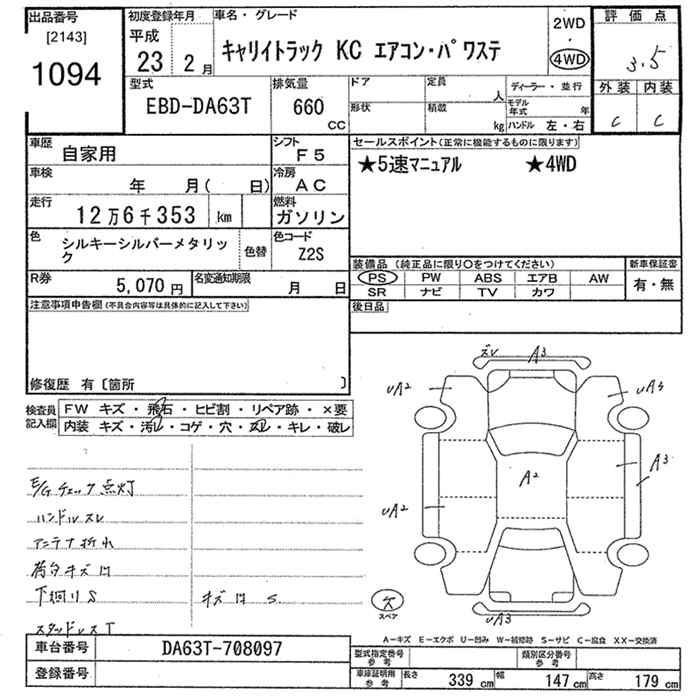 出品番号 初度登録年月 車名・グレード 2WD 評価点
[2143] 平成 4WD
1094 23 2月 キャリイトラック KC エアコン・パワステ 3.5
型式 排気量 ドア 定員 ディーラー・並行 外装 内装
EBD-DA63T 660 CC 形状 積載 人 kg モデル年式 年 ハンドル 左・右 C C
車歴 自家用 シフト F5 セールスポイント(正常に機能するものに限ります)
★5速マニュアル ★4WD
車検 年 月( 日) 冷房 AC
走行 12万6千353 km 燃料 ガソリン
色 シルキーシルバーメタリック 色替 色コード Z2S
装備品 (純正品に限り○をつけてください) 新車保証書
PS PW ABS エアB AW 有・無
SR ナビ TV カワ
R券 5,070円 名変通知期限 月 日
後日品
注意事項申告欄(不具合内容等は具体的に記入して下さい)
修復歴 有〔箇所 〕
検査員記入欄 FW キズ・飛石・ヒビ割・リペア跡・×要
内装 キズ・汚レ・コゲ・穴・スレ・キレ・破レ
E/Gチェック点灯
ハンドルスレ
アンテナ折れ
荷台キズ凹
下回りS キズ凹 S
スタッドレスT
ズレ A3
UA2 UA3
A2 A3
UA2
UA3
スペア
A-キズ E-エクボ U-凹み W-補修跡 S-サビ C-腐食 XX-交換済
車台番号 DA63T-708097
登録番号
型式指定番号 参考 類別区分番号 参考
車庫証明用 参考 長さ 339 cm 幅 147 cm 高さ 179 cm